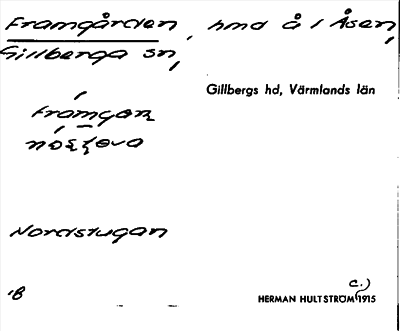 Framgården, hmd å 1 Åsen,
Gillberga sn,
Gillbergs hd, Värmlands län
Nordstugan
c.)
HERMAN HULTSTRÖM 1915